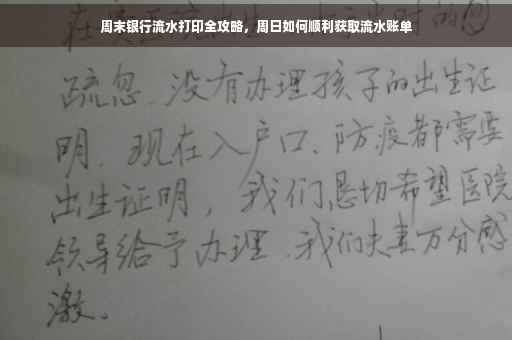 周末银行流水打印全攻略，周日如何顺利获取流水账单
疏忽.没有办理孩子的出生证
明.现在入户口、防疫都需要
出生证明，我们恳切希望医院
领导给予办理.我们夫妻万分感
激。